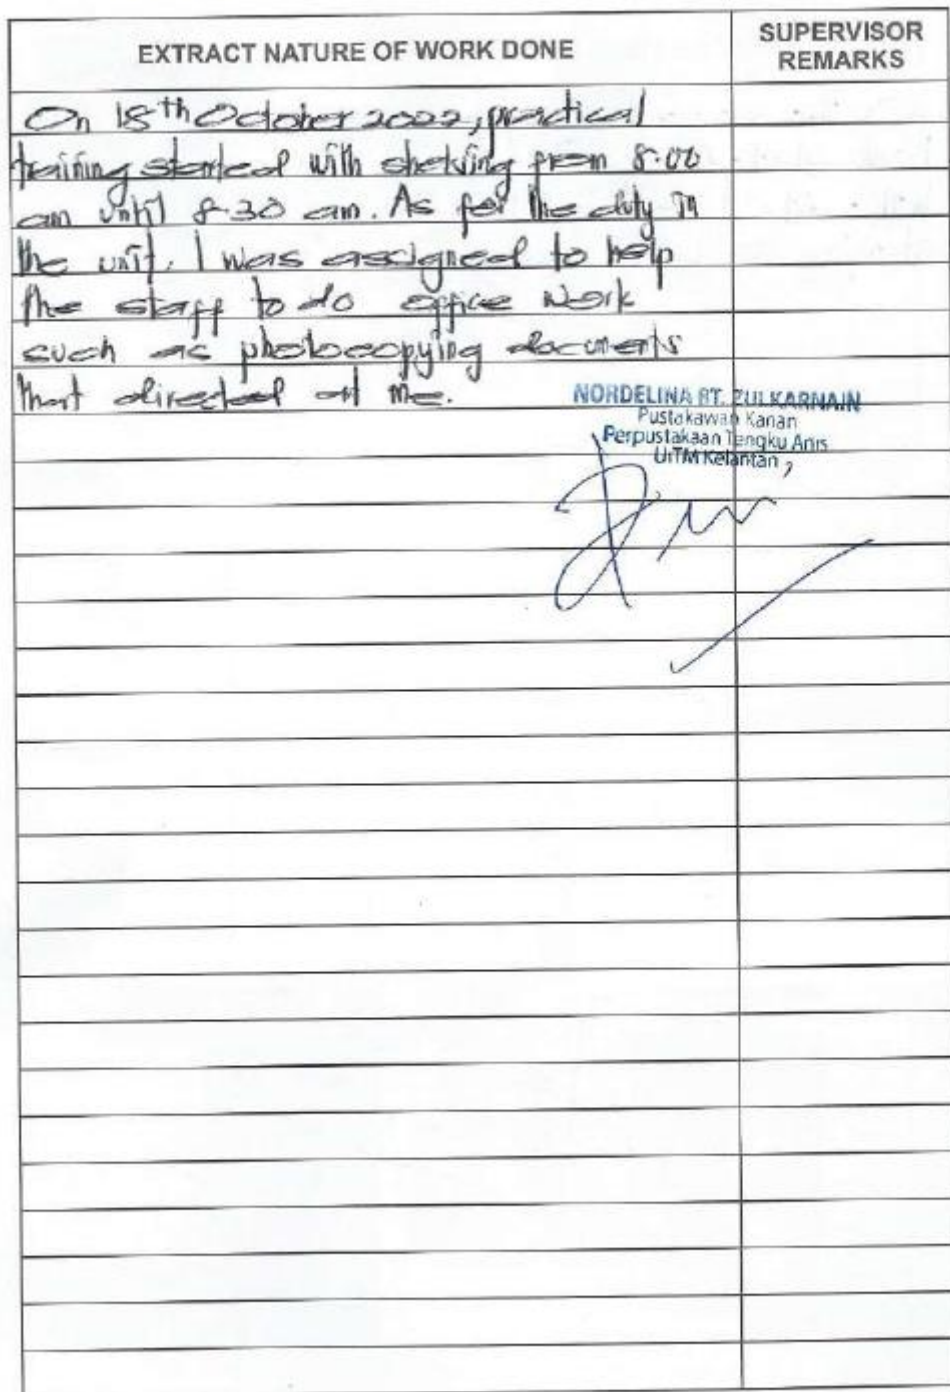 EXTRACT NATURE OF WORK DONE
SUPERVISOR
REMARKS
On 18th October 2022, practical
training started with shelving from 8.00
am until 8.30 am. As for the duty in
the unit, I was assigned to help
the staff to do office work
such as photocopying documents
that directed at me.
NORDELINA BT. ZULKARNAIN
Pustakawan Kanan
Perpustakaan Tengku Anis
UiTM Kelantan